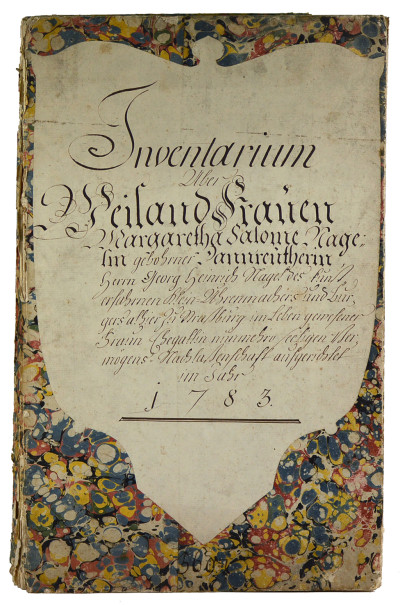 Inventarium
Über
Weiland Frauen
Margaretha Salome Nage⸗
lin gebohrner Dannreutherin
Herrn Georg Henrich Nagel des Kunst
erfahrnen Klein Uhrenmachers und Bür⸗
gers allhier zu Straßburg im Leben gewesener
Frauen Ehegattin nunmehro seeligen Ver⸗
mögens Nachlassenschaft aufgerichtet
im Jahr
1783.